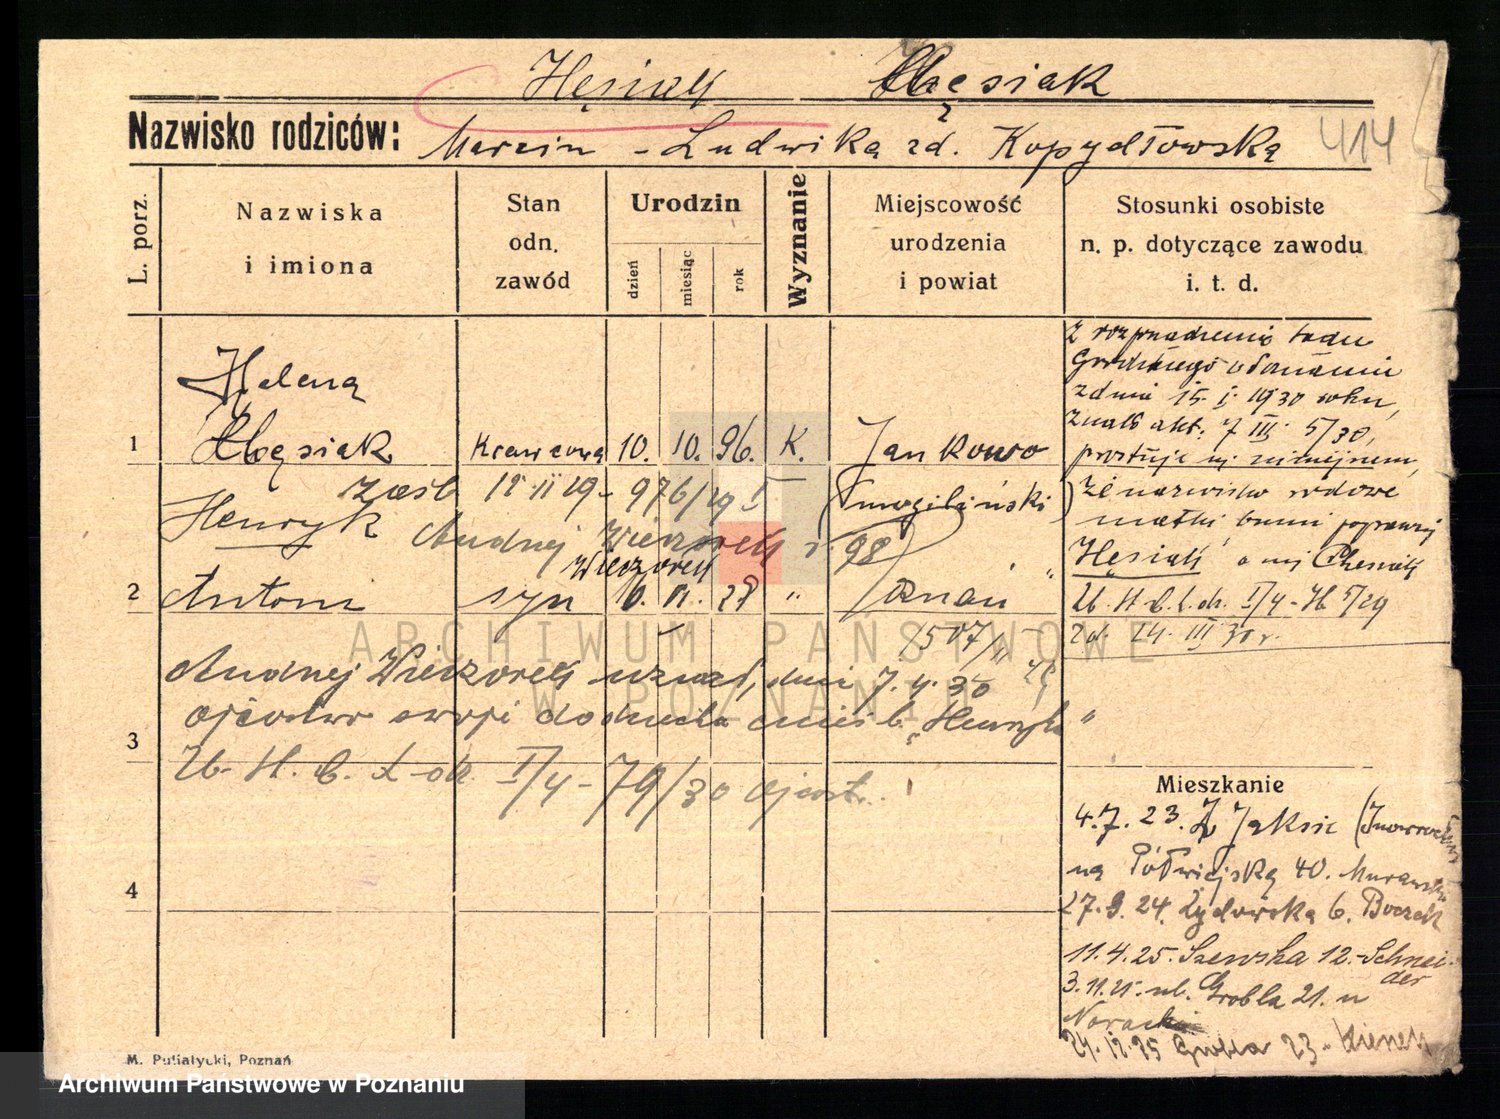 Hęsiak Chęsiak
Nazwisko rodziców: Marcin - Ludwika zd. Kopydłowska 414
L. porz.
Nazwiska i imiona
Stan odn. zawód
Urodzin
dzień miesiąc rok
Wyznanie
Miejscowość urodzenia i powiat
Stosunki osobiste n. p. dotyczące zawodu i. t. d.
1 Helena
Chęsiak Krawcowa 10. 10. 96. K. Jankowo
zaśl 15 II 19 - 976/19 I (mogiliński)
Henryk Andrzej Wieczorek r. 98
Wieczorek
2 Antoni syn 6. VI. 28 " Poznań
1507/
Andrzej Wieczorek uznał, dnia 7. 4. 30
ojcostwo swoje do dziecka imieb. "Henryk"
3
U. H. C. L. dz. I/4 - 79/30 ojcost.
4
Z rozporządzenia Sądu
Grodzkiego w Poznaniu
z dnia 15. I. 1930 roku,
znak akt: 7 III 5/30,
prostuje się niniejszem,
że nazwisko rodowe
matki brzmi poprawnie
Hęsiak a nie Chęsiak
U. H. C. L. dz. I/4 - H 5/29
zd. 14. III 30 r.
Mieszkanie
4.7.23. Z Jaksic (Inowrocław
na Półwiejską 40. Murawska
27.9.24. Żydowska 6. Boczek
11.4.25. Szewska 12. - Schneider
3.11.25. ul. Grobla 21. u
Noracki
24.12.25 Grobla 23.
M. Putiatycki, Poznań
ARCHIWUM PAŃSTWOWE
W POZNANIU
Archiwum Państwowe w Poznaniu